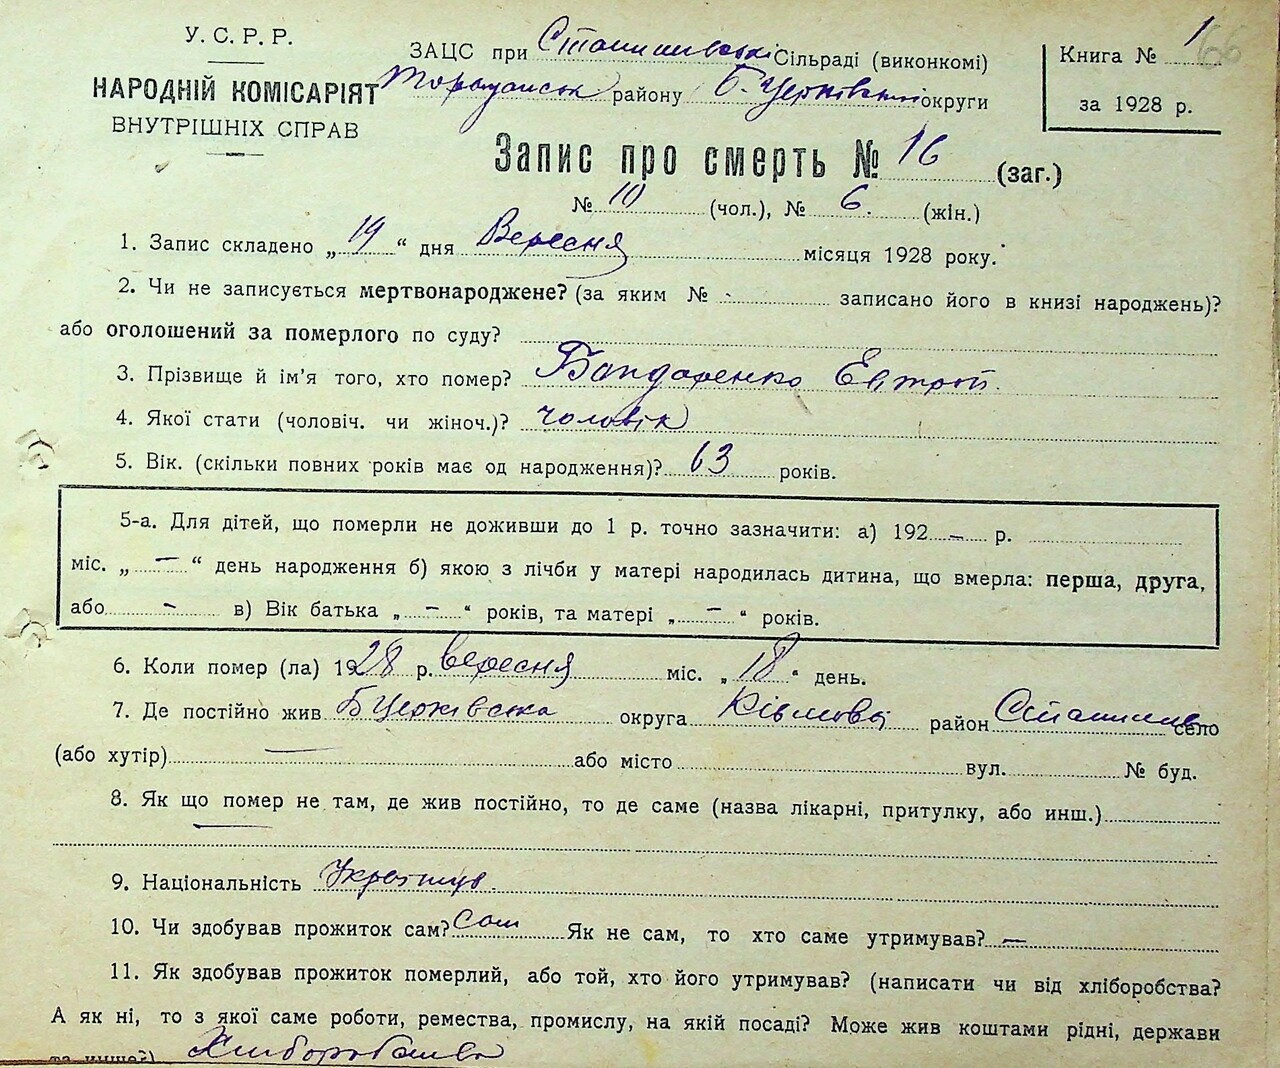 У. С. Р. Р.
НАРОДНІЙ КОМІСАРІЯТ
ВНУТРІШНІХ СПРАВ
ЗАЦС при Станишівські Сільраді (виконкомі)
району Б. Церківської округи
Книга № 1
66
за 1928 р.
Запис про смерть № 16 (заг.)
№ 10 (чол.), № 6. (жін.)
1. Запис складено „19“ дня Вересня місяця 1928 року.
2. Чи не записується мертвонароджене? (за яким № - записано його в книзі народжень)?
або оголошений за померлого по суду?
3. Прізвище й ім'я того, хто помер? Бондаренко Евтроп.
4. Якої стати (чоловіч. чи жіноч.)? чоловік
5. Вік. (скільки повних років має од народження)? 63 років.
5-а. Для дітей, що померли не доживши до 1 р. точно зазначити: а) 192 – р.
міс. „ – “ день народження б) якою з лічби у матері народилась дитина, що вмерла: перша, друга,
або – в) Вік батька „ – “ років, та матері „ – “ років.
6. Коли помер (ла) 1928 р. вересня міс. „18“ день.
7. Де постійно жив БЦерківська округа район Станишівка село
(або хутір) — або місто вул. № буд.
8. Як що помер не там, де жив постійно, то де саме (назва лікарні, притулку, або инш.)
9. Національність
10. Чи здобував прожиток сам? Сам Як не сам, то хто саме утримував? —
11. Як здобував прожиток померлий, або той, хто його утримував? (написати чи від хліборобства?
А як ні, то з якої саме роботи, ремества, промислу, на якій посаді? Може жив коштами рідні, держави
та инше?)